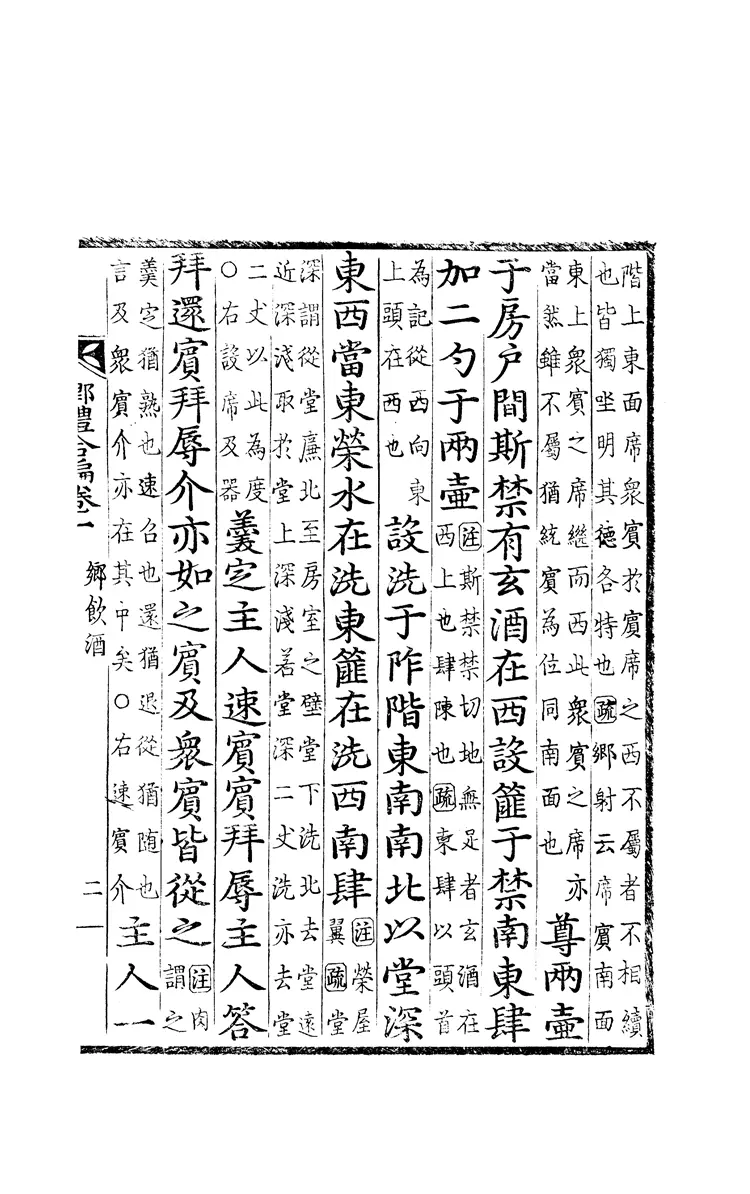 階上東面席眾賓於賓席之西不屬者不相續
也皆獨坐明其德各特也疏鄉射云席賓南面
東上眾賓之席繼而西此眾賓之席亦
當然雖不屬猶統賓為位同南面也
尊兩壺
于房戶間斯禁有玄酒在西設篚于禁南東肆
加二勺于兩壺
注斯禁禁切地無足者玄酒在
西上也肆陳也疏東肆以頭首
為記從西向東
上頭在西也
設洗于阼階東南南北以堂深
東西當東榮水在洗東篚在洗西南肆
注榮屋
翼疏堂
深謂從堂廉北至房室之壁堂下洗北去堂遠
近深淺取於堂上深淺若堂深二丈洗亦去堂
二丈以此為度
○右設席及器
羹定主人速賓賓拜辱主人答
拜還賓拜辱介亦如之賓及眾賓皆從之
注肉
謂之
羹定猶熟也速召也還猶退從猶隨也
言及眾賓介亦在其中矣○右速賓介
主人一
鄉禮合編卷一
鄉飲酒
二